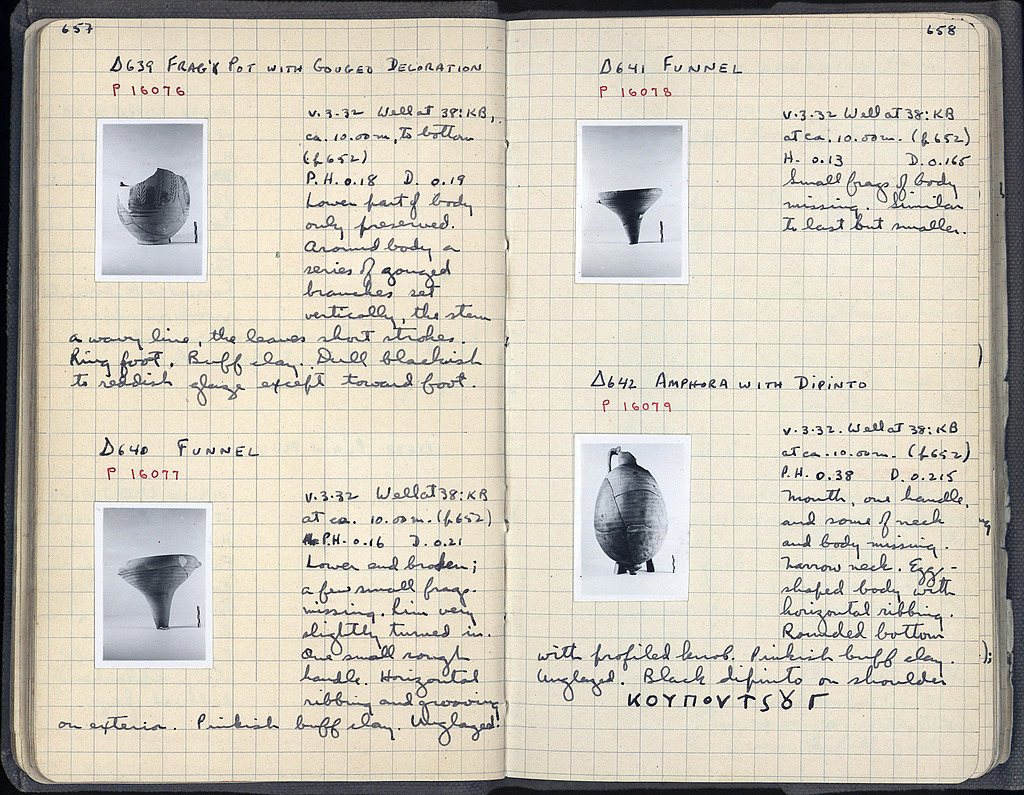 657
Δ639 FRAG'Y POT WITH GOUGED DECORATION
P 16076
v.3.32 Well at 38:KB,
ca. 10.00m, to bottom
(p652)
P.H. 0.18 D. 0.19
Lower part of body
only preserved.
Around body a
series of gouged
branches set
vertically, the stem
a wavy line, the leaves short strokes.
Ring foot. Buff clay. Dull blackish
to reddish glaze except toward foot.
Δ640 FUNNEL
P 16077
v.3.32 Well at 38:KB
at ca. 10.00m. (p652)
P.H. 0.16 D. 0.21
Lower end broken;
a few small frags.
missing. Rim very
slightly turned in.
One small rough
handle. Horizontal
ribbing and grooving
on exterior. Pinkish buff clay. Unglazed.
658
Δ641 FUNNEL
P 16078
v.3.32 Well at 38:KB
at ca. 10.00m. (p652)
H. 0.13 D. 0.165
Small frags of body
missing. Similar
to last but smaller.
Δ642 AMPHORA WITH DIPINTO
P 16079
v.3.32. Well at 38:KB
at ca. 10.00m. (p652)
P.H. 0.38 D. 0.215
Mouth, one handle,
and some of neck
and body missing.
Narrow neck. Egg-
shaped body with
horizontal ribbing.
Rounded bottom
with profiled knob. Pinkish buff clay.
Unglazed. Black dipinto on shoulder
ΚΟΥΠΟΥ